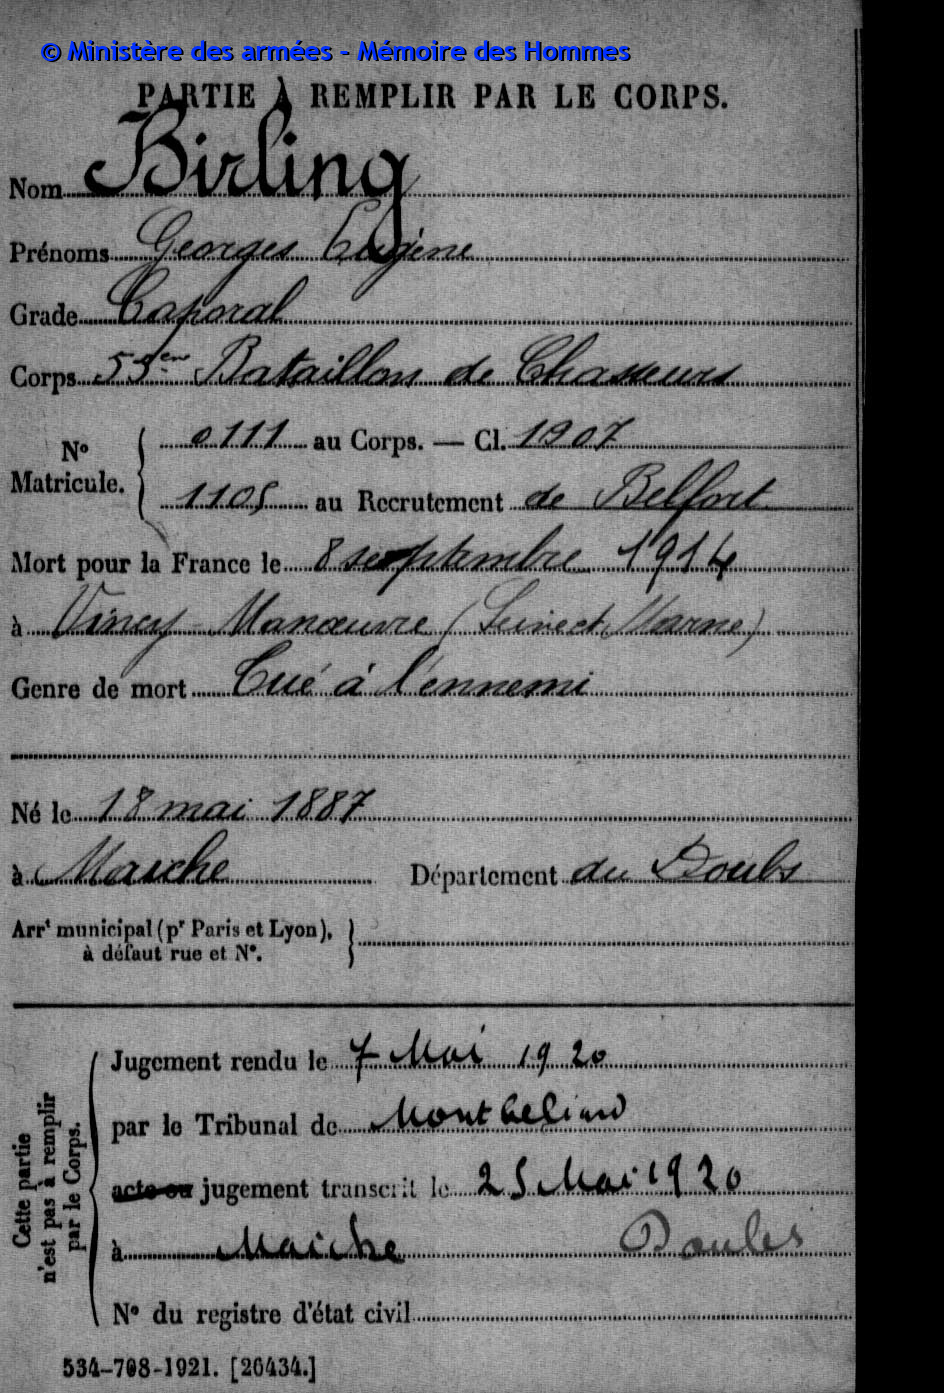 © Ministère des armées - Mémoire des Hommes
PARTIE À REMPLIR PAR LE CORPS.
Nom Birling
Prénoms Georges Eugène
Grade Caporal
Corps 55em Bataillon de Chasseurs
N° Matricule. 0111 au Corps. — Cl. 1907
1105 au Recrutement de Belfort
Mort pour la France le 8 septembre 1914
à Vincy-Manœuvre (Seine et Marne)
Genre de mort Tué à l'ennemi
Né le 18 mai 1887
à Maiche Département du Doubs
Arrt municipal (pr Paris et Lyon), à défaut rue et N°.
Cette partie n'est pas à remplir par le Corps.
Jugement rendu le 7 Mai 1920
par le Tribunal de Montbeliard
acte ou jugement transcrit le 25 Mai 1920
à Maiche Doubs
N° du registre d'état civil
534-708-1921. [26434.]